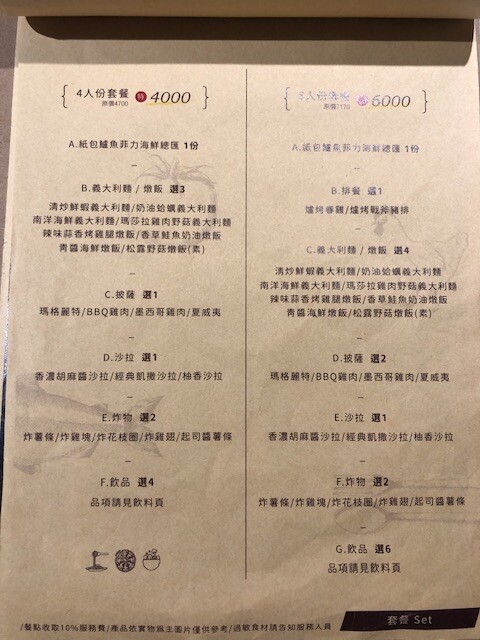 4人份套餐 特 4000
原價4700
A.紙包鱸魚菲力海鮮總匯 1份
B.義大利麵 / 燉飯 選3
清炒鮮蝦義大利麵/奶油蛤蠣義大利麵
南洋海鮮義大利麵/瑪莎拉雞肉野菇義大利麵
辣味蒜香烤雞腿燉飯/香草鮭魚奶油燉飯
青醬海鮮燉飯/松露野菇燉飯(素)
C.披薩 選1
瑪格麗特/BBQ雞肉/墨西哥雞肉/夏威夷
D.沙拉 選1
香濃胡麻醬沙拉/經典凱撒沙拉/柚香沙拉
E.炸物 選2
炸薯條/炸雞塊/炸花枝圈/炸雞翅/起司醬薯條
F.飲品 選4
品項請見飲料頁
人份套餐 6000
原價7170
A.紙包鱸魚菲力海鮮總匯 1份
B.排餐 選1
爐烤春雞/爐烤戰斧豬排
C.義大利麵 / 燉飯 選4
清炒鮮蝦義大利麵/奶油蛤蠣義大利麵
南洋海鮮義大利麵/瑪莎拉雞肉野菇義大利麵
辣味蒜香烤雞腿燉飯/香草鮭魚奶油燉飯
青醬海鮮燉飯/松露野菇燉飯(素)
D.披薩 選2
瑪格麗特/BBQ雞肉/墨西哥雞肉/夏威夷
E.沙拉 選1
香濃胡麻醬沙拉/經典凱撒沙拉/柚香沙拉
F.炸物 選2
炸薯條/炸雞塊/炸花枝圈/炸雞翅/起司醬薯條
G.飲品 選6
品項請見飲料頁
/餐點收取10%服務費/產品依實物為主圖片僅供參考/過敏食材請告知服務人員
套餐 Set